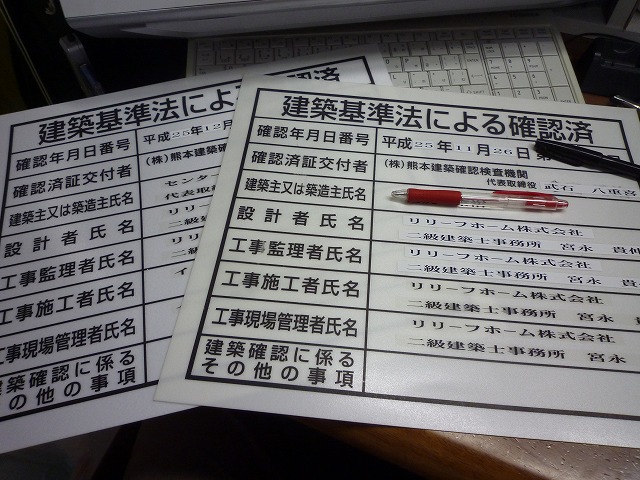 建築基準法による確認済
確認年月日番号
平成25年12月
確認済証交付者
(株)熊本建築確
建築主又は築造主氏名
センタ
代表取締
設計者氏名
リリーフ
二級建築
工事監理者氏名
リリ
二級
工事施工者氏名
工事現場管理者氏名
建築確認に係る
その他の事項
建築基準法による確認済
確認年月日番号
平成25年11月26日 第
確認済証交付者
(株)熊本建築確認検査機関
代表取締役 武石 八重喜
建築主又は築造主氏名
設計者氏名
リリーフホーム株式会社
二級建築士事務所 宮永 貴伸
工事監理者氏名
リリーフホーム株式会社
二級建築士事務所 宮永 貴
工事施工者氏名
リリーフホーム株式会社
二級建築士事務所 宮永 貴
工事現場管理者氏名
リリーフホーム株式会社
二級建築士事務所 宮永
建築確認に係る
その他の事項